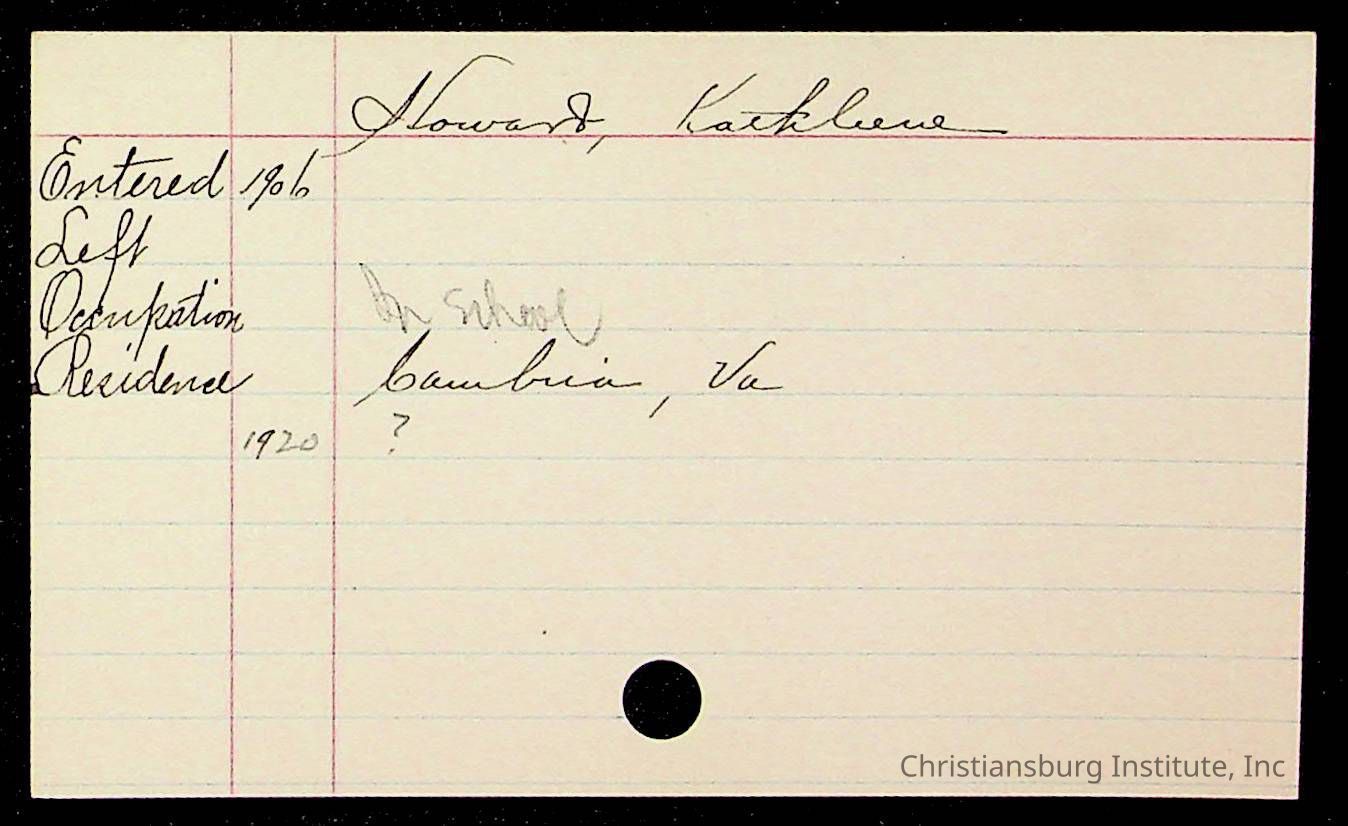 Howard, Kathleene
Entered 1906
Left
Occupation In School
Residence Cambria, Va
1920 ?
Christiansburg Institute, Inc